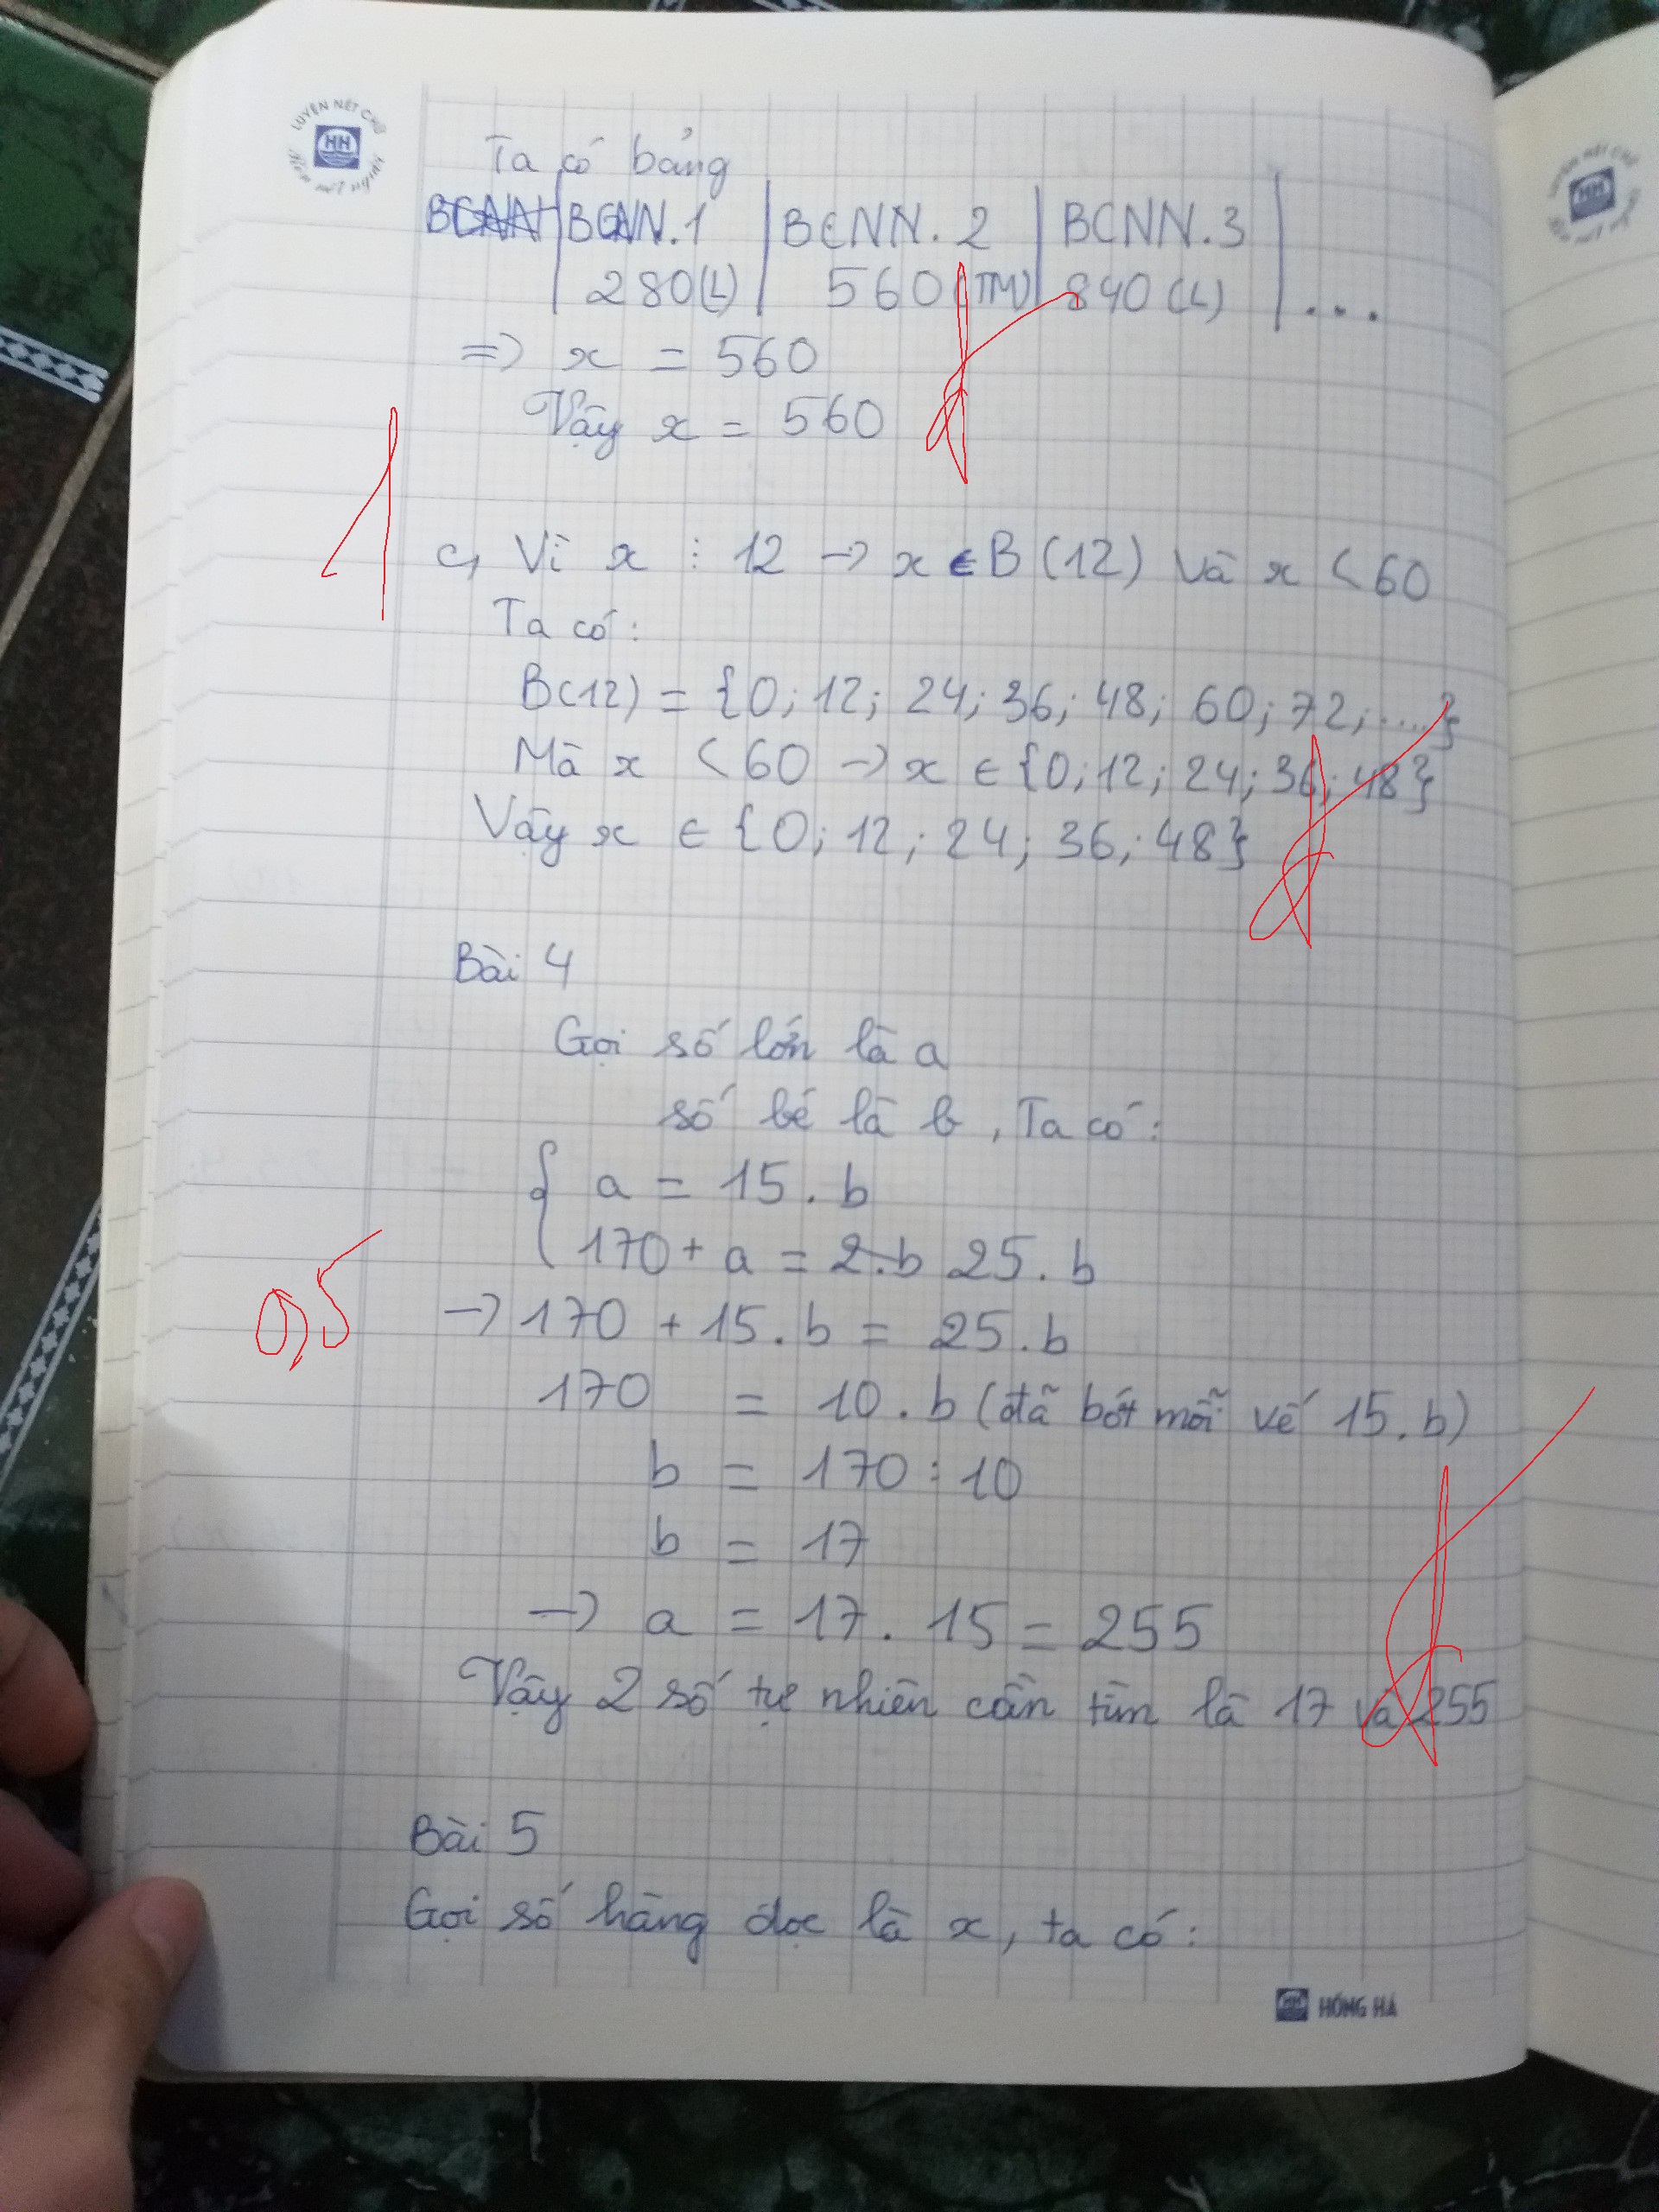 LUYỆN NÉT CHỮ
HH
Ta có bảng
BCNN | BCNN.1 | BCNN.2 | BCNN.3 |
280(L) | 560(TM) | 840(L) | ...
=> x = 560
Vậy x = 560
1
c, Vì x ⋮ 12 -> x ∈ B(12) và x < 60
Ta có:
B(12) = {0; 12; 24; 36; 48; 60; 72; ....}
Mà x < 60 -> x ∈ {0; 12; 24; 36; 48}
Vậy x ∈ {0; 12; 24; 36; 48}
Bài 4
Gọi số lớn là a
số bé là b, Ta có:
{ a = 15.b
170 + a = 2.b 25.b
0,5
-> 170 + 15.b = 25.b
170 = 10.b (đã bớt mỗi vế 15.b)
b = 170 : 10
b = 17
-> a = 17.15 = 255
Vậy 2 số tự nhiên cần tìm là 17 và 255
Bài 5
Gọi số hàng dọc là x, ta có:
HH HỒNG HÀ